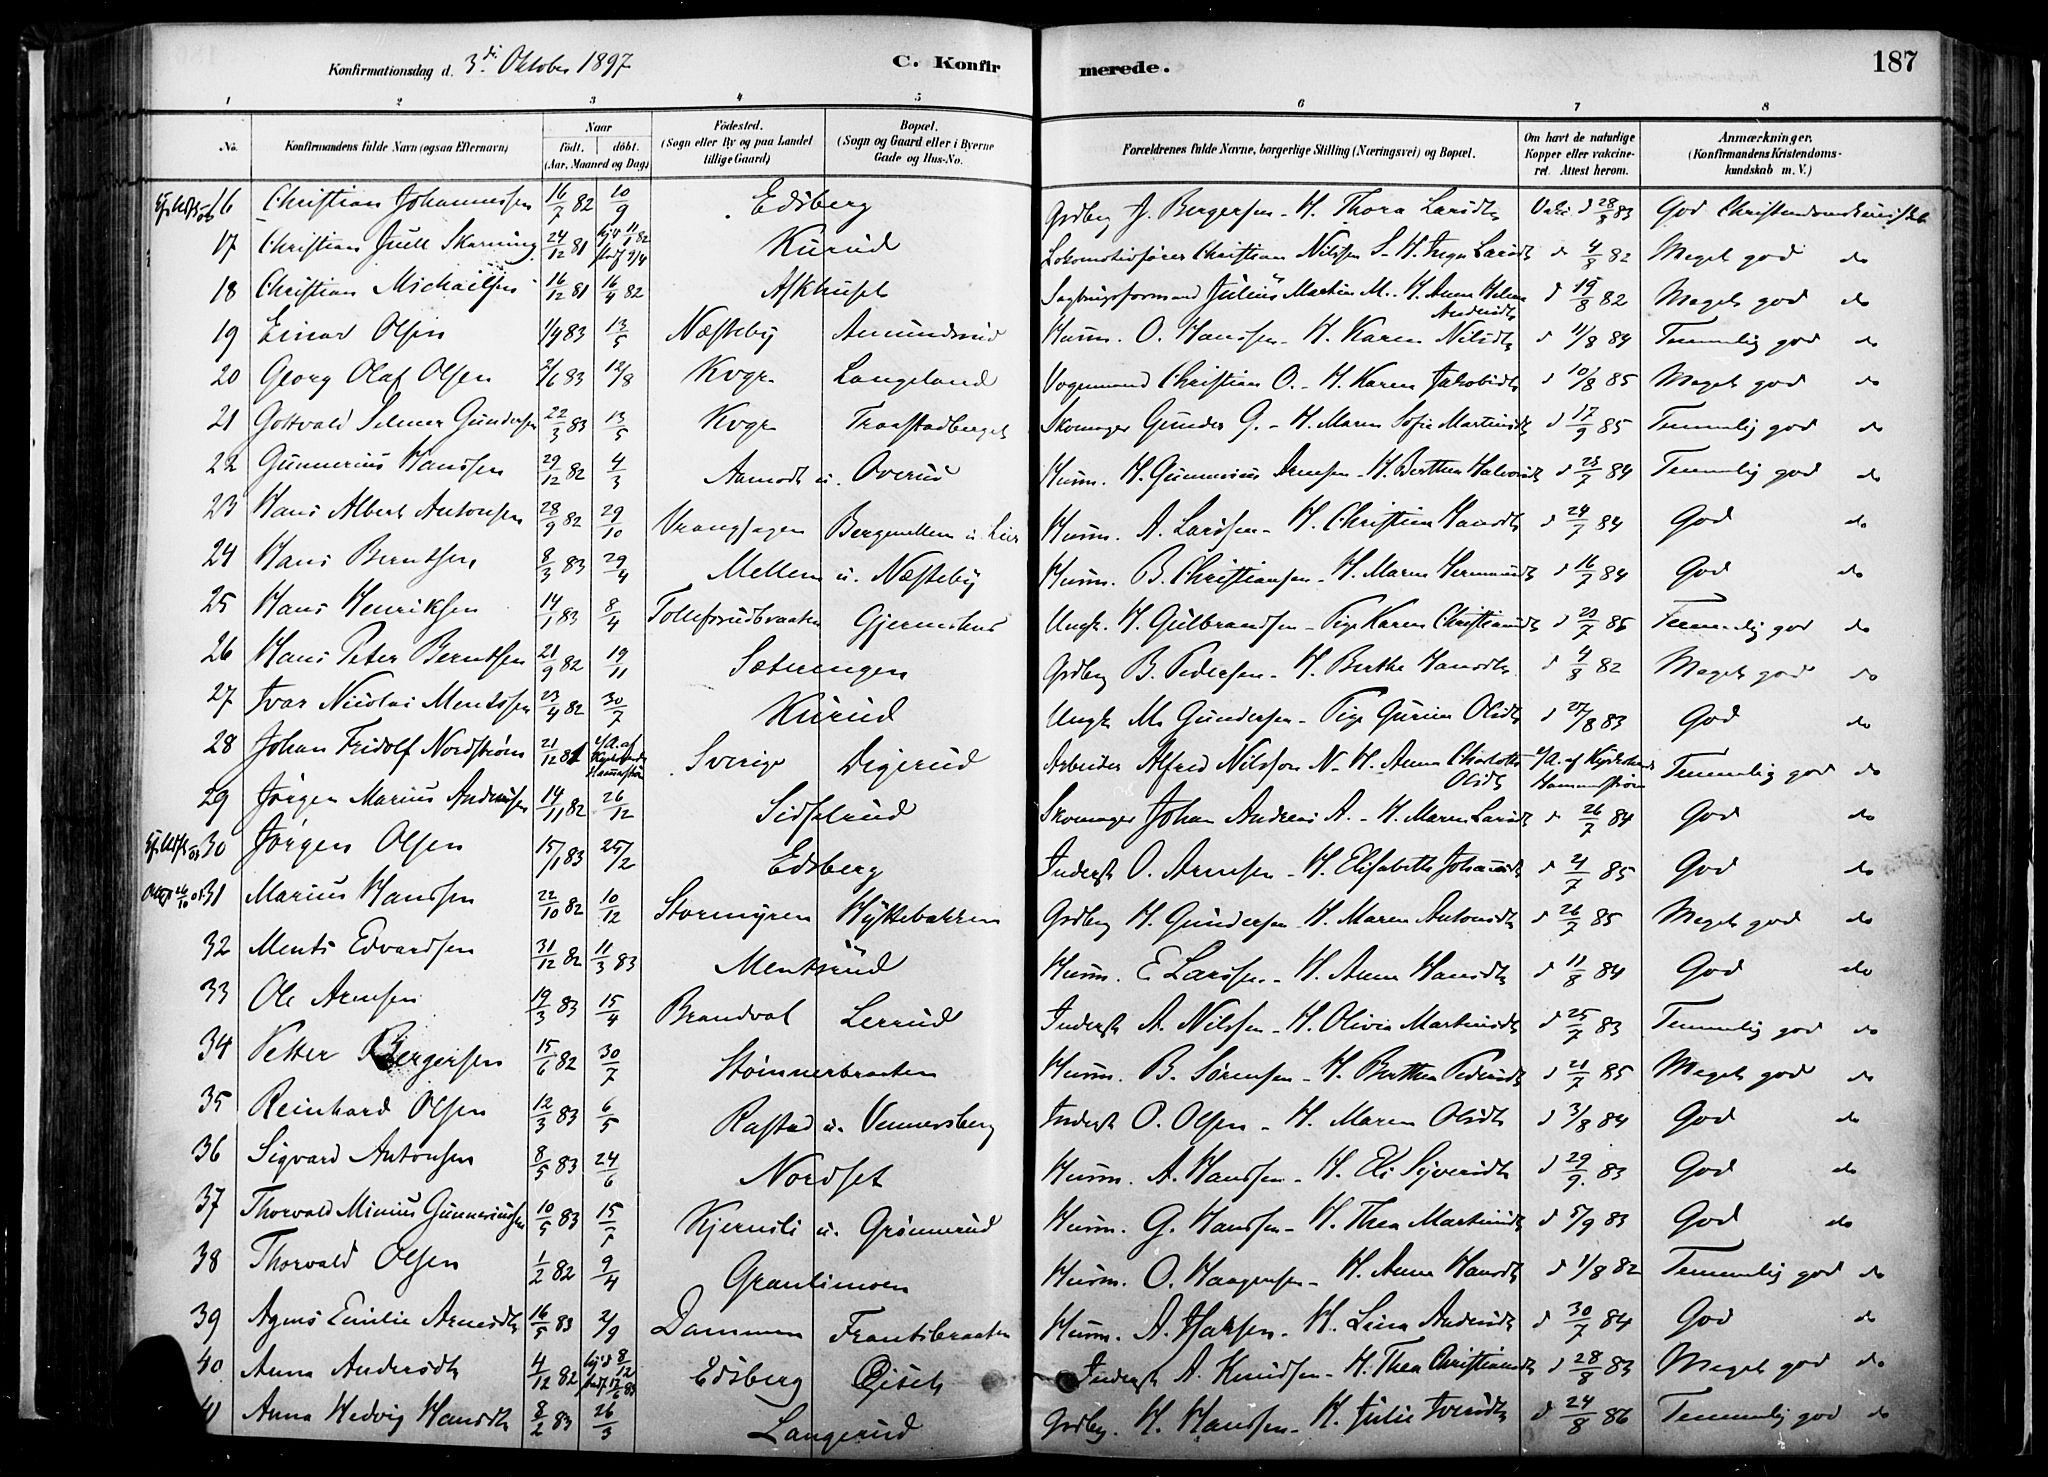 Konfirmationsdag d. 3die Oktober 1897
C. Konfir
merede.
187
1 2 3 4 5 6 7 8
No.
Konfirmandens fulde Navn (ogsaa Efternavn)
Naar
født. døbt.
(Aar, Maaned og Dag)
Fødested.
(Sogn eller By og paa Landet tillige Gaard)
Bopæl.
(Sogn og Gaard eller i Byerne Gade og Hus-No.
Forældrenes fulde Navne, borgerlige Stilling (Næringsvei) og Bopæl.
Om havt de naturlige Kopper eller vakcineret. Attest herom.
Anmærkninger.
(Konfirmandens Kristendomskundskab m. V.)
16 Christian Johannessen 16/7 82 10/9 Edsberg Grdbrg J. Bergersen - H. Thora Larsdt 28/8 83 God Christendomskundskab
17 Christian Juell Skarning 24/12 81 Kurud Lokomotivfører Christian Nilssen S. - H. Inga Larsdt d 4/8 82 Meget god do
18 Christian Michailsen 16/12 81 16/4 82 Askhuset Sagbrugsformand Julius Martin M. - H. Anne Helene Andersdt d 19/8 82 Meget god do
19 Einar Olsen 1/4 83 13/5 Næsteby Amundsrud Husm. O. Hanssen - H. Karen Nilsdt d 11/8 84 Temmelig god do
20 Georg Olaf Olsen 2/6 83 12/8 Kvgr. Langeland Vognmand Christian O. - H. Karen Jakobsdt d 10/8 85 Meget god do
21 Gottvald Selmer Gundersen 22/3 83 13/5 Kvgr Traastadberget Skomager Gunder G. - H. Maren Sofie Martinsdt d 17/9 85 Temmelig god do
22 Gunnerius Hanssen 29/12 82 4/3 Aamodt u. Overud Husm. H. Gunnerius Arnesen - H. Berthea Halvorsdt d 23/7 84 Temmelig god do
23 Hans Albert Antonsen 28/9 82 29/10 Vranghagen Bergemellem u. Lier Husm. A. Larssen - H. Christine Hansdt d 24/7 84 God do
24 Hans Berntsen 8/3 83 29/4 Mellem u. Næsteby Husm. B. Christiansen - H. Maren Hermansdt d 16/7 84 God do
25 Hans Henriksen 14/1 83 8/4 Tollefsrudbraaten Gjermshus Ungk. H. Gulbrandsen - Pige Karen Christiansdt d 21/7 85 Temmelig god do
26 Hans Peter Berntsen 21/9 82 19/11 Sætningen Grdbrg B. Pedersen - H. Berthe Hansdt d 4/8 82 Meget god do
27 Ivar Nicolai Mentssen 23/4 82 30/7 Kurud Ungk M. Gundersen - Pige Gurine Olsdt d 27/8 83 God do
28 Johan Fridolf Nordstrøm 21/12 81 Sverige Digerud Arbeider Alfred Nilsson N - H. Anna Charlotte Olsdt Temmelig god do
29 Jørgen Marius Andreassen 14/11 82 26/12 Sidselrud Skomager Johan Andreas A. - H. Maren Larsdt d 26/7 84 God do
30 Jørgen Olsen 15/1 83 25/2 Edsberg Inderst O. Arnesen - H. Elisabeth Johansdt d 21/7 85 God do
31 Marius Hanssen 22/10 82 10/12 Stormyren Hyttebakken Grdbrg H. Gundersen - H. Maren Antonsdt d 26/7 85 Meget god do
32 Ments Edvardsen 31/12 82 11/3 83 Mentsrud Husm. E Larssen - H. Anne Hansdt d 11/8 84 God do
33 Ole Arnesen 19/3 83 15/4 Brandval Lerrud Inderst A. Nilssen - H. Olivia Martinsdt d 25/7 83 Temmelig god do
34 Petter Bergersen 15/6 82 30/7 Stømnerbraaten Husm. B. Sørensen - H. Berthea Pedersdt d 21/7 85 Meget god do
35 Reinhard Olsen 12/3 83 6/5 Rastad u. Vennersberg Inderst O. Olsen - H. Maren Olsdt d 3/8 84 God do
36 Sigvard Antonsen 8/5 83 24/6 Nordset Husm. A. Hanssen - H. Eli Syversdt d 29/9 83 God do
37 Thorvald Minius Gunneriussen 10/5 83 15/7 Kjernsli u. Grønnerud Husm. G. Hanssen - H. Thea Martinsdt d 5/9 83 God do
38 Thorvald Olsen 1/2 82 9/4 Granlimoen Husm. O. Haagensen - H. Anne Hansdt d 1/8 82 Temmelig god do
39 Agnes Emilie Arnesdt 16/5 83 2/9 Dammen Frantsbraaten Husm. A. Halssen - H. Lina Andersdt d 30/7 84 God do
40 Anna Andersdt 4/12 82 Edsberg Inderst A. Knudsen - H. Thea Christiansdt d 28/8 83 Meget god do
41 Anna Hedvig Hansdt 8/2 83 26/3 Langerud Grdbrg. H. Hanssen - H. Julie Iversdt d 24/8 86 Temmelig god do